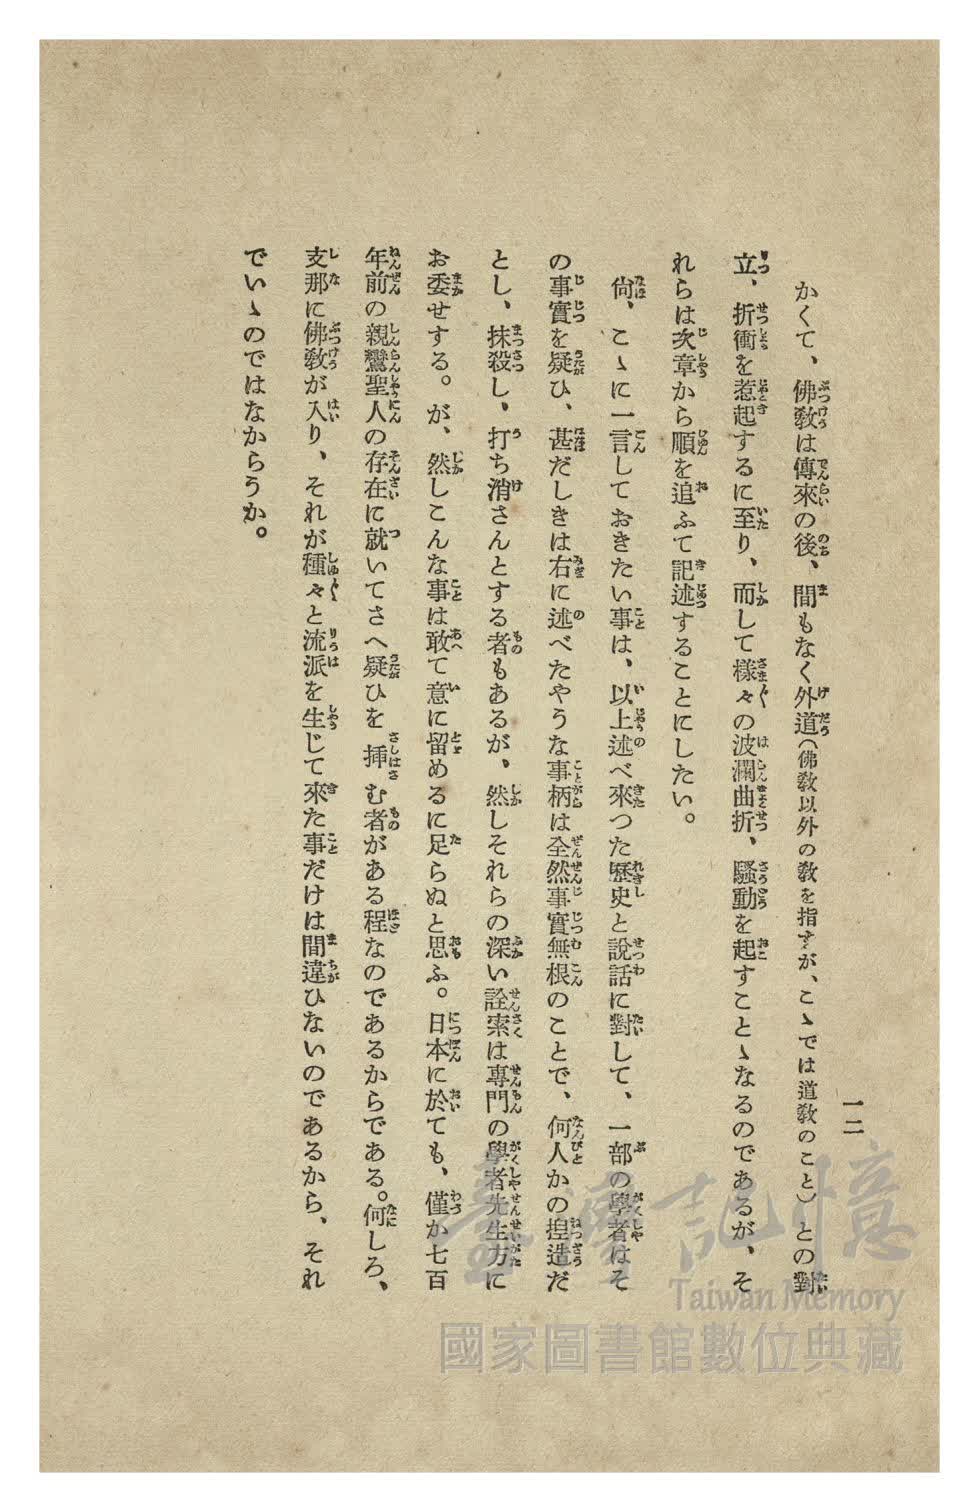 一二
かくて、佛敎は傳來の後、間もなく外道(佛敎以外の敎を指すが、こゝでは道敎のこと)との對
立、折衝を惹起するに至り、而して樣々の波瀾曲折、騷動を起すことゝなるのであるが、そ
れらは次章から順を追ふて記述することにしたい。
尙、こゝに一言しておきたい事は、以上述べ來つた歷史と說話に對して、一部の學者はそ
の事實を疑ひ、甚だしきは右に述べたやうな事柄は全然事實無根のことで、何人かの揑造だ
とし、抹殺し、打ち消さんとする者もあるが、然しそれらの深い詮索は專門の學者先生方に
お委せする。が、然しこんな事は敢て意に留めるに足らぬと思ふ。日本に於ても、僅か七百
年前の親鸞聖人の存在に就いてさへ疑ひを挿む者がある程なのであるからである。何しろ、
支那に佛敎が入り、それが種々と流派を生じて來た事だけは間違ひないのであるから、それ
でいゝのではなからうか。
臺灣記憶
Taiwan Memory
國家圖書館數位典藏